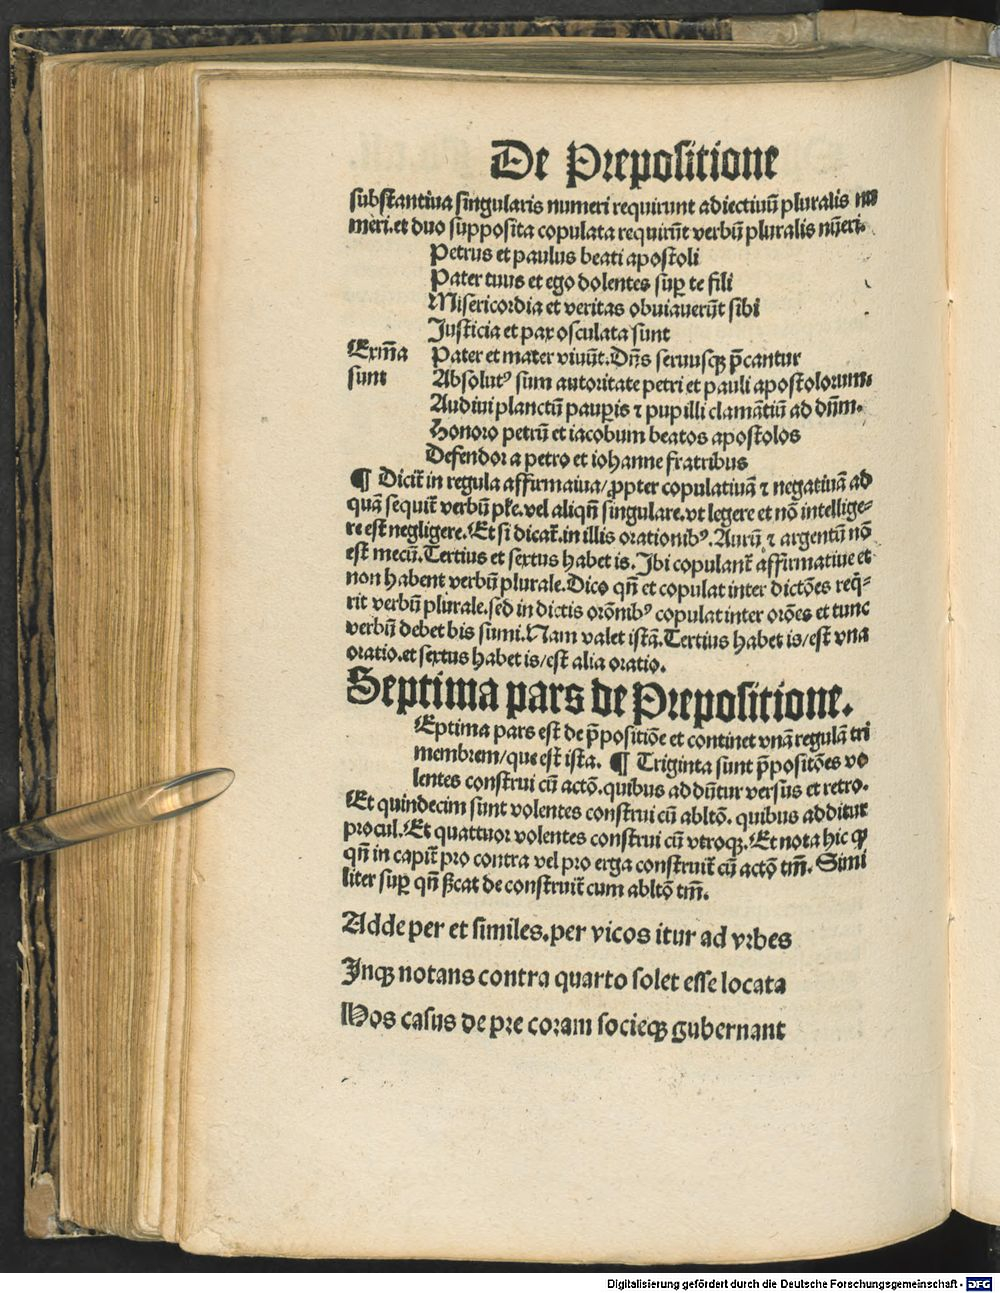 De Prepositione
substantiua singularis numeri requirunt adiectiuū pluralis nu
meri.et duo supposita copulata requirūt verbū pluralis nūeri.
Petrus et paulus beati apostoli
Pater tuus et ego dolentes suꝑ te fili
Misericordia et veritas obuiauerūt sibi
Justicia et pax osculata sunt
Exm̄a Pater et mater viuūt.Dn̄s seruusqꝫ p̄cantur
sunt Absolutꝰ sum autoritate petri et pauli apostolorum.
Audiui planctū pauꝑis ⁊ pupilli clamātiū ad dn̄m.
Honoro petrū et iacobum beatos apostolos
Defendor a petro et iohanne fratribus
¶ Dicit̄ in regula affirmaiua/ꝓpter copulatiuā ⁊ negatiuā ad
quā sequit̄ verbū pl̄e.vel aliqn̄ singulare.vt legere et nō intellige⸗
re est negligere.Et si dicat̄.in illis orationibꝰ.Aurū ⁊ argentū nō
est mecū.Tertius et sextus habet is.Ibi copulant̄ affirmatiue et
non habent verbū plurale.Dico qn̄ et copulat inter dictōes req̄⸗
rit verbū plurale.sed in dictis orōnibꝰ copulat inter orōes et tunc
verbū debet bis sumi.Nam valet istā.Tertius habet is/est vna
oratio.et sextus habet is/est alia oratio.
Septima pars de Prepositione.
Eptima pars est de p̄positiōe et continet vnā regulā tri
membrem/que est ista. ¶ Triginta sunt p̄positōes vo
lentes construi cū actō.quibus addūtur versus et retro.
Et quindecim sunt volentes construi cū abltō. quibus additur
procul.Et quattuor volentes construi cū vtroqꝫ.Et nota hic ꝙ
qn̄ in capit̄ pro contra vel pro erga construit̄ cū actō tm̄. Simi
liter suꝑ qn̄ sc̄at de construit̄ cum abltō tm̄.
Adde per et similes.per vicos itur ad vrbes
Inqꝫ notans contra quarto solet esse locata
Hos casus de pre coram socieqꝫ gubernant
Digitalisierung gefördert durch die Deutsche Forschungsgemeinschaft - DFG